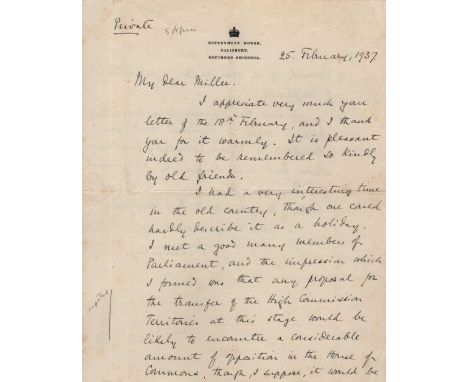 Private
S Africa
GOVERNMENT HOUSE,
SALISBURY,
SOUTHERN RHODESIA.
25. February, 1937.
My dear Miller.
I appreciate very much your
letter of the 18th February, and I thank
you for it warmly. It is pleasant
indeed to be remembered so kindly
by old friends.
I had a very interesting time
in the old country, though one could
hardly describe it as a holiday.
I met a good many members of
Parliament, and the impression which
I formed was that any proposal for
the transfer of the High Commission
Territories at this stage would be
likely to encounter a considerable
amount of opposition in the House of
Commons, though, I suppose, it would be